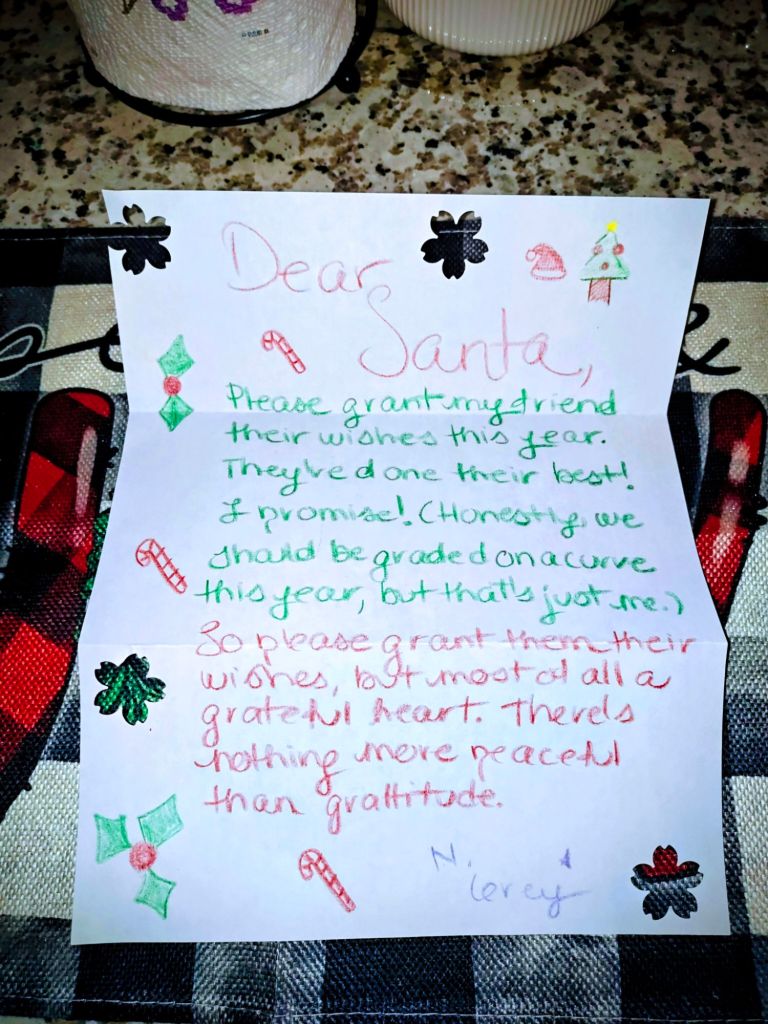 Dear
Santa,
Please grant my friend
their wishes this year.
They've done their best!
I promise! (Honestly, we
should be graded on a curve
this year, but that's just me.)
So please grant them their
wishes, but most of all a
grateful heart. There's
nothing more peaceful
than grattitude.
N.
&